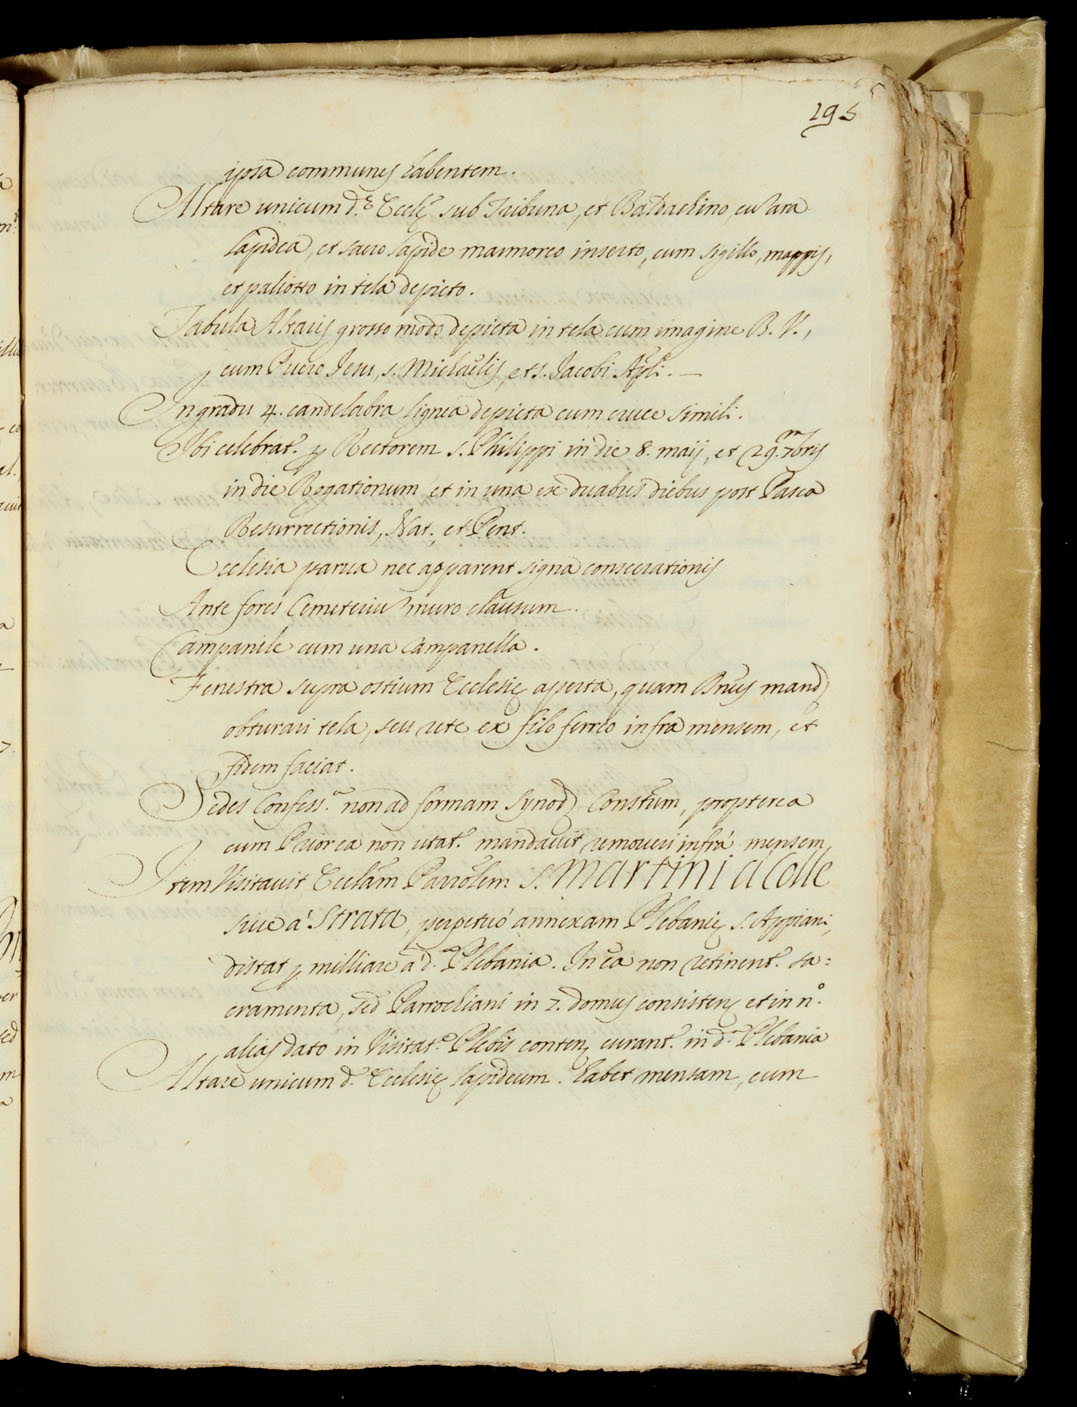 195
ipsa communes habentem.
Altare unicum d.ę Eccl.ę sub Tribuna, et Baldachino cu' ara
lapidea, et sacro lapide marmoreo inserto, cum sigillo, mappis,
et paliotto in tela depicto.
Tabula Altaris grosso modo depicta in tela cum imagine B. V.,
cum Puero Jesu, s. Michaelis, et s. Jacobi Ap'li. —
In gradu 4. candelabra lignea depicta cum cruce simili.
Ibi celebrat.r p Rectorem s. Philippi in die 8. maij, et 29. 7bris
in die Rogationum et in una ex duabus diebus post Pasca
Resurrectionis, Nat., et Pent.
Ecclesia parva nec apparent signa consecrationis
Ante fores Cemeteriu' muro clausum.
Campanile cum una campanella.
Fenestra supra ostium Ecclesię aperta, quam mand.
obturari tela, seu rete ex filo ferreo infra mensem, et
fidem faciat.
Sedes Confess.a non ad formam Synod. Const'um, propterea
cum Prior ea non utat.r mandavit removeri infrà mensem
Item Visitavit Eccl'am Paro'lem S. Martini à Colle
sive à Strata, perpetuò annexam Plebanię S. Appiani,
distat p milliare à d.a Plebania. In ea non retinent.r sa=
cramenta, sed Parrochiani in 7. domus consistens et in n.o
alias dato in Visitat.e Plebis conten. curant.r in d.a Plebania
Altare unicum d.ę Ecclesię lapideum. habet mensam, cum